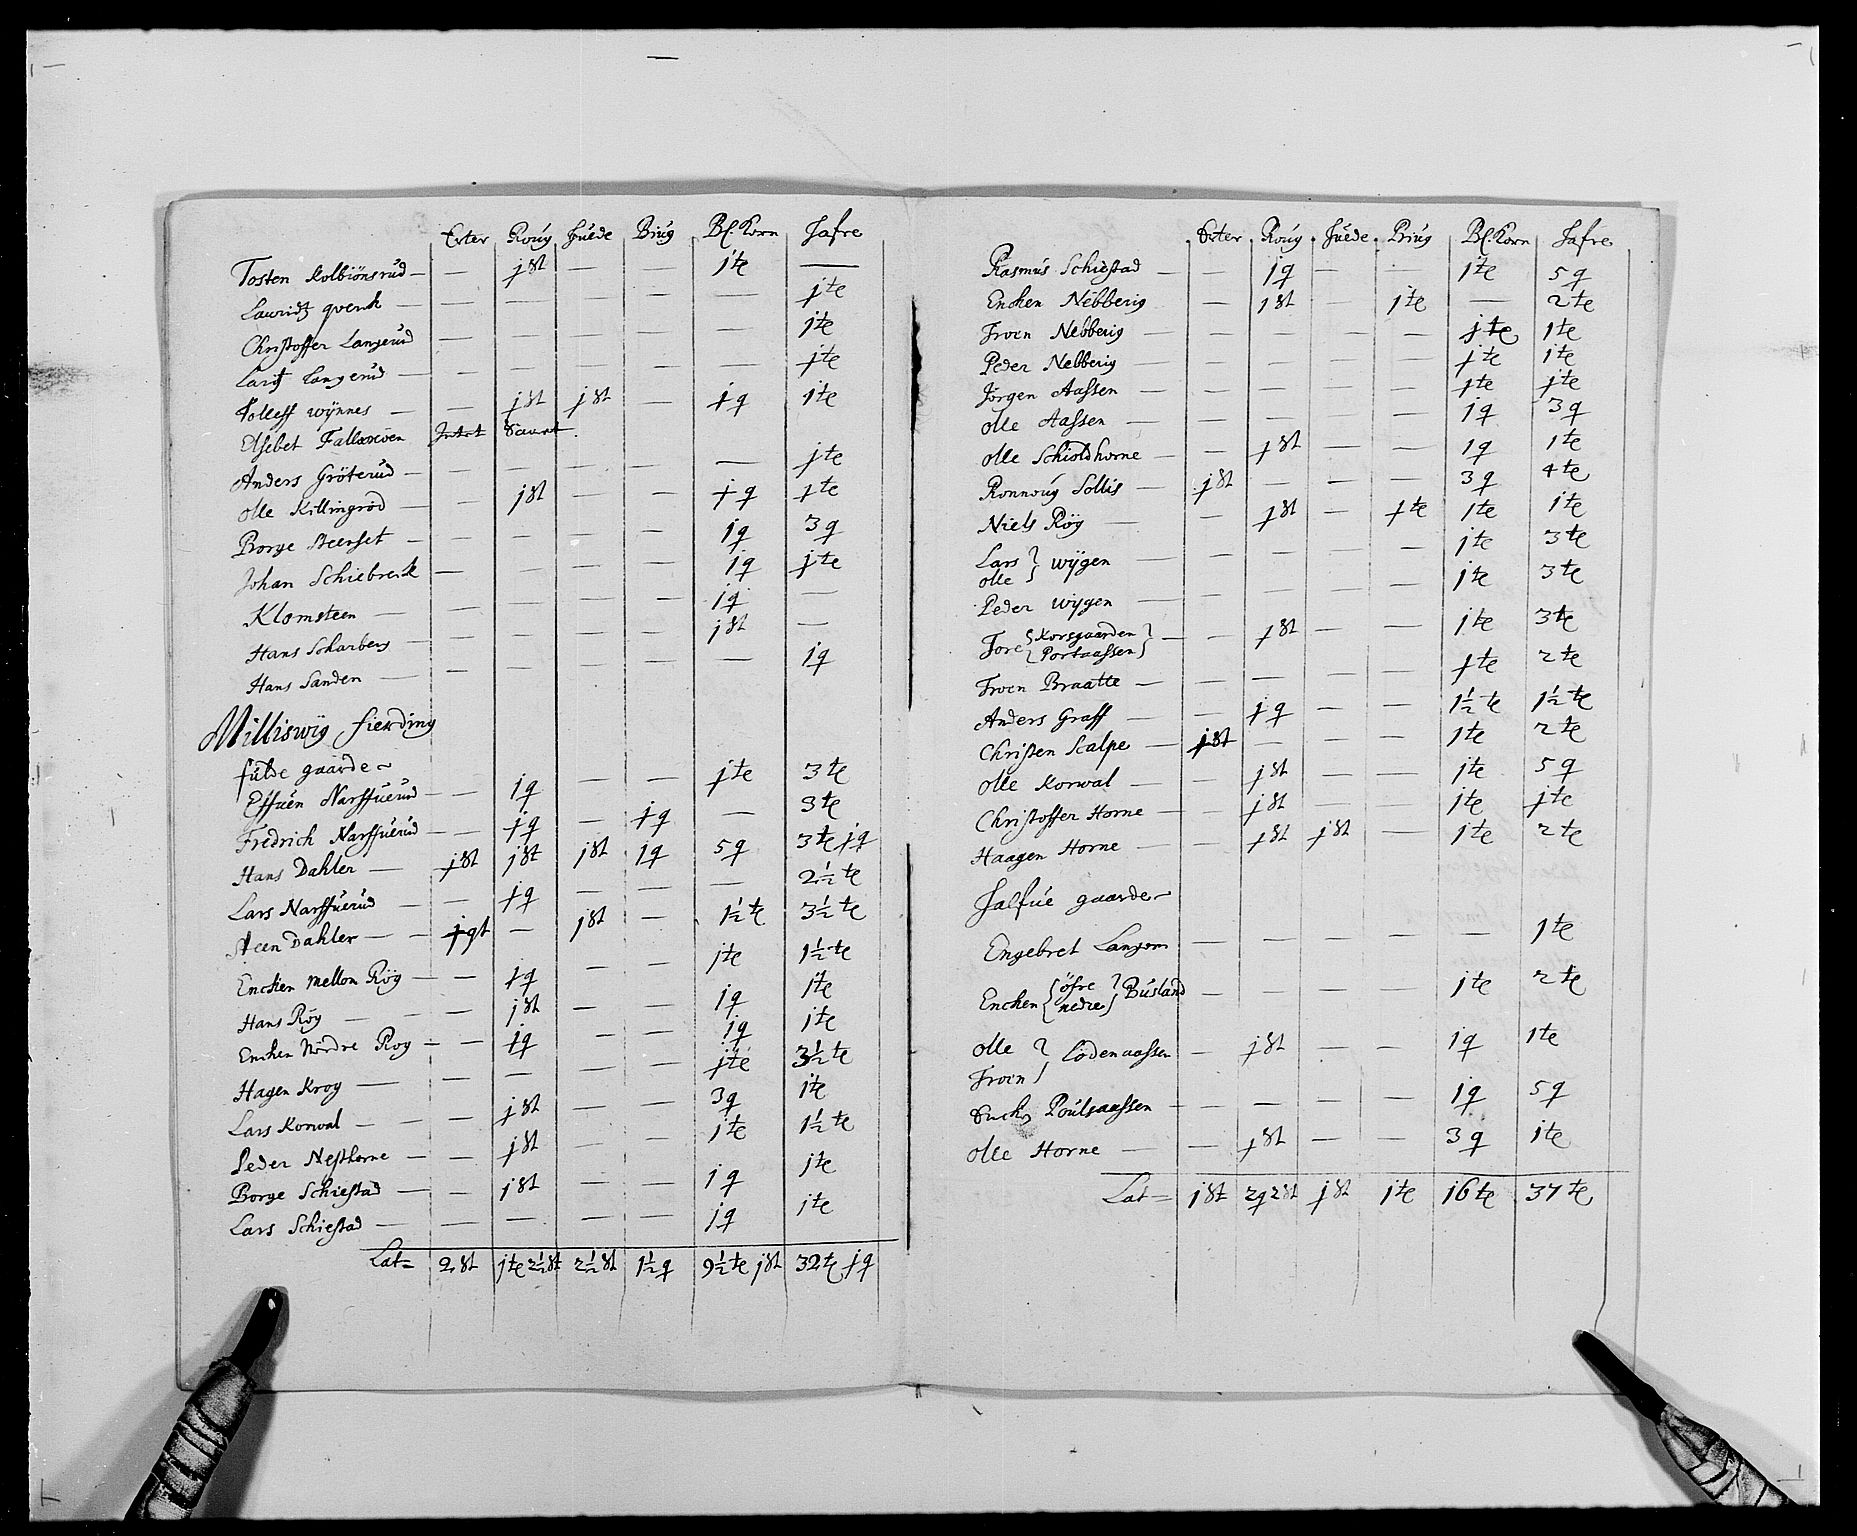 Erter Roug Huede Biug Bl: Korn Hafre
Tosten Kolbiönsrud — — j 8t — j te —
Lauridtz qvenk — — — — — — j te
Christoffer Langerud — — — — — — 1 te
Laritz Langerud — — — — — — j te
Tolleff wÿnnes — — j 8t j 8t — j q 1 te
Elsebet Fallaxöen Intet Saaet
Anders Gröterud — — — — — — j te
Olle Killingröd — — j 8t — — j q j te
Borge Steenset — — — — — 1 q 3 q
Johan Schiebreck — — — — — 1 q j te
Klomsteen — — — — — 1 q —
Hans Scharberg — — — — — j 8t —
Hans Sanden — — — — — — 1 q
Milliswÿg fierding
fulde gaarde
Effuen Narffuerud — — 1 q — — j te 3 te
Fredrich Narffuerud — — j q — j q — 3 te
Hans Dahler — j 8t j 8t j 8t 1 q 5 q 3 te j q
Lars Narffuerud — — 1 q — — — 2½ te
Steen Dahler — — j 8t — j 8t — 1½ te 3½ te
Encken mellom Röÿ — — 1 q — — j te 1½ te
Hans Röÿ — — j 8t — — 1 q 1 te
Encken Nördre Roy — — 1 q — — 1 q 1 te
Hagen Kroy — — — — — j te 3½ te
Lars Korwal — — j 8t — — 3 q 1 te
Peder Nesthorne — — j 8t — — 1 te 1½ te
Borge Schiestad — — j 8t — — 1 q j te
Lars Schiestad — — — — — j q 1 te
Lat= 2 8t j te 2½ 8t 2½ 8t 1½ q 9½ te j 8t 32 te j q
Erter Roug Huede Biug Bl: Korn Hafre
Rasmus Schiestad — — 1 q — — 1 te 5 q
Encken Nebberig — 1 8t — 1 te — 2 te
Froen Nebberig — — — — — j te 1 te
Peder Nebberig — — — — — j te 1 te
Jörgen Aassen — — — — — 1 te j te
Olle Aassen — — — — — 1 q 3 q
Olle Schioldhorne — — j 8t — — 1 q 1 te
Ronnoug Sollis — j 8t — — — 3 q 4 te
Niels Röÿ — — j 8t — j te 1 te 1 te
Lars
Olle wÿgen — — — — — j te 3 te
Peder wÿgen — — — — — 1 te 3 te
Tore Korsgaarden
Portaassen — — j 8t — — 1 te 3 te
Froen Braatte — — — — — j te 2 te
Anders Graff — — j q — — 1½ te 1½ te
Christen Scalpe — j 8t — — — 1 te 2 te
Olle Korwal — — j 8t — — j te 5 q
Christoffer Horne — — j 8t — — j te j te
Haagen Horne — — j 8t j 8t — 1 te 2 te
Halfue gaarde
Engebret Langom — — — — — 1 te
Encken öfre
nedre Busland — — — — 1 te 2 te
Olle
Froen Lödenaassen — j 8t — — 1 q 1 te
Poulsaassen — — — — 1 q 5 q
Olle Horne — — j 8t — — 3 q 1 te
Lat= j 8t 2 q 2 8t j 8t 1 te 16 te 37 te